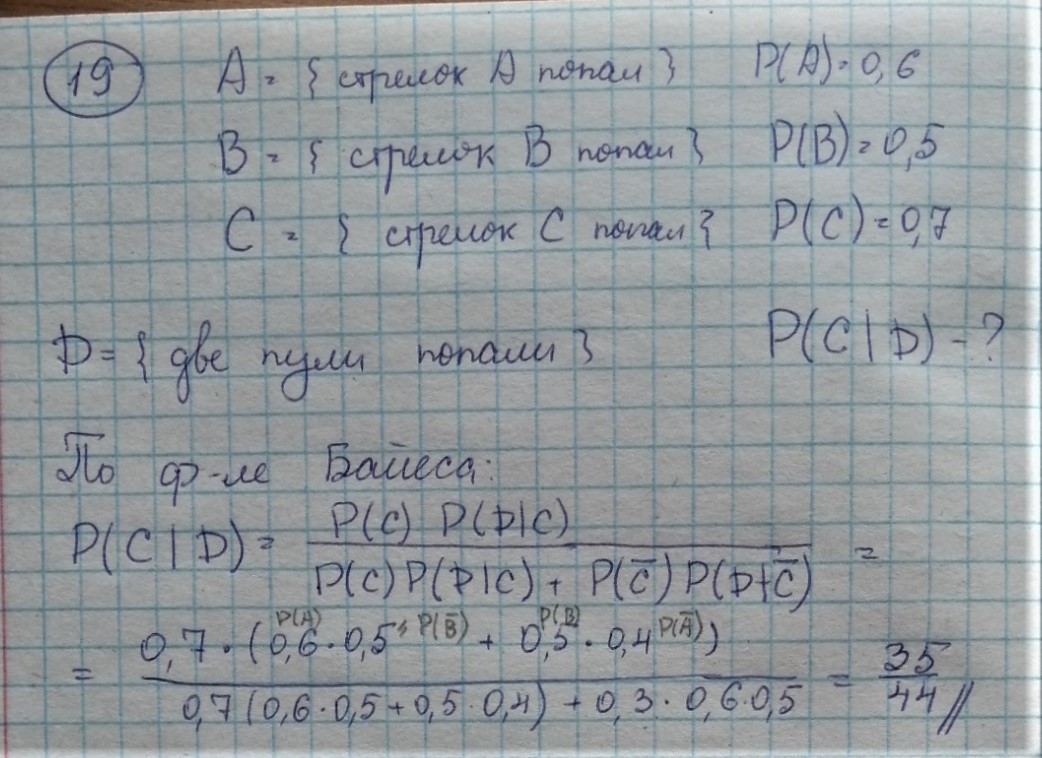 19 A = { стрелок А попал } P(A) = 0,6
B = { стрелок B попал } P(B) = 0,5
C = { стрелок C попал } P(C) = 0,7
D = { две пули попали } P(C|D) - ?
По ф-ле Байеса:
P(C|D) = P(C) P(D|C) / P(C)P(D|C) + P(C̅)P(D|C̅) =
P(A) P(B̅) P(B) P(A̅)
= 0,7 · (0,6 · 0,5 + 0,5 · 0,4) / 0,7(0,6·0,5+0,5·0,4) + 0,3 · 0,6·0,5 = 35/44 //